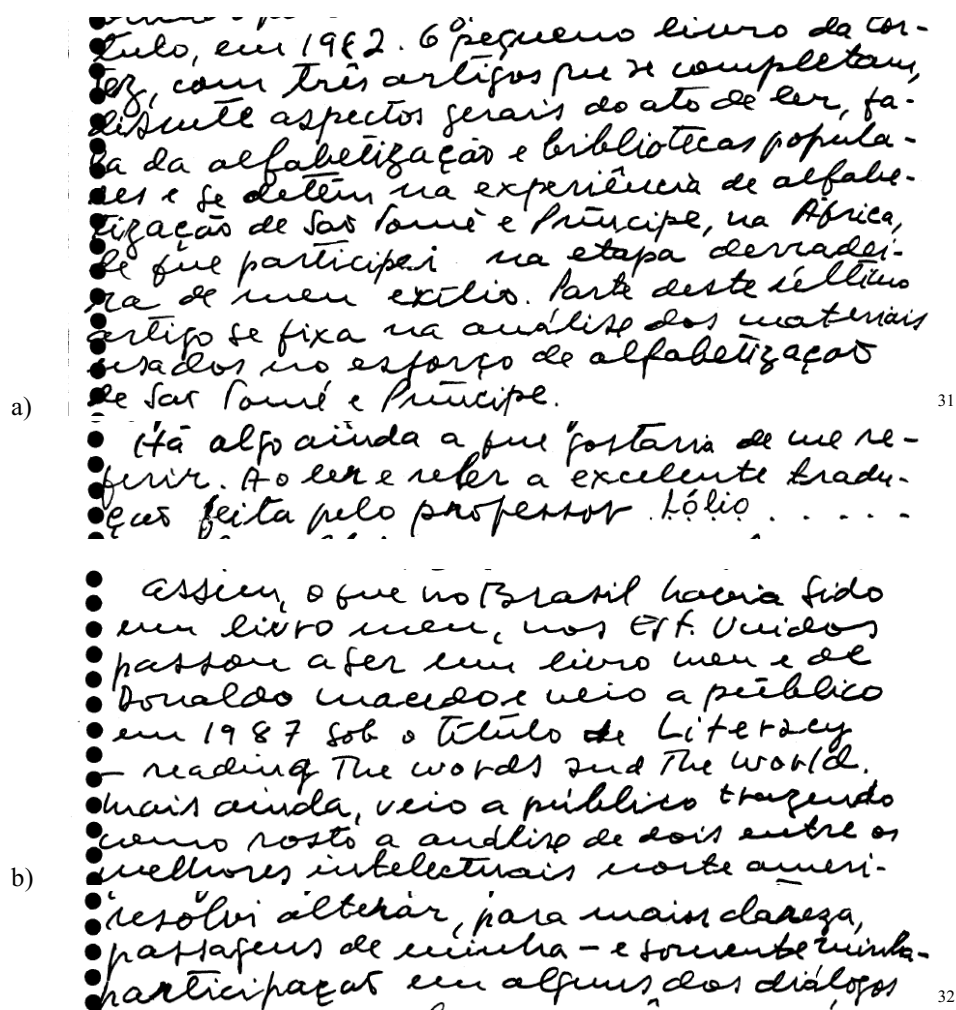 tulo, em 1982. O pequeno livro da Cor-
tez, com três artigos que se completam,
discute aspectos gerais do ato de ler, fa-
la da alfabetização e bibliotecas popula-
res e se detém na experiência de alfabe-
tização de São Tomé e Príncipe, na África,
de que participei na etapa derradei-
ra de meu exílio. Parte deste último
artigo se fixa na análise dos materiais
usados no esforço de alfabetização
a) de São Tomé e Príncipe. 31
Há algo ainda a que gostaria de me re-
ferir. Ao ler e reler a excelente tradu-
ção feita pelo professor Lólio . . . . .
assim, o que no Brasil havia sido
um livro meu, nos Est. Unidos
passou a ser um livro meu e de
Donaldo Macedo e veio a público
em 1987 sob o título de Literacy
– reading The words and The world.
Mais ainda, veio a público trazendo
como rosto a análise de dois entre os
b) melhores intelectuais norte ameri-
resolvi alterar, para maior clareza,
passagens de minha – e somente minha –
participação em alguns dos diálogos 32